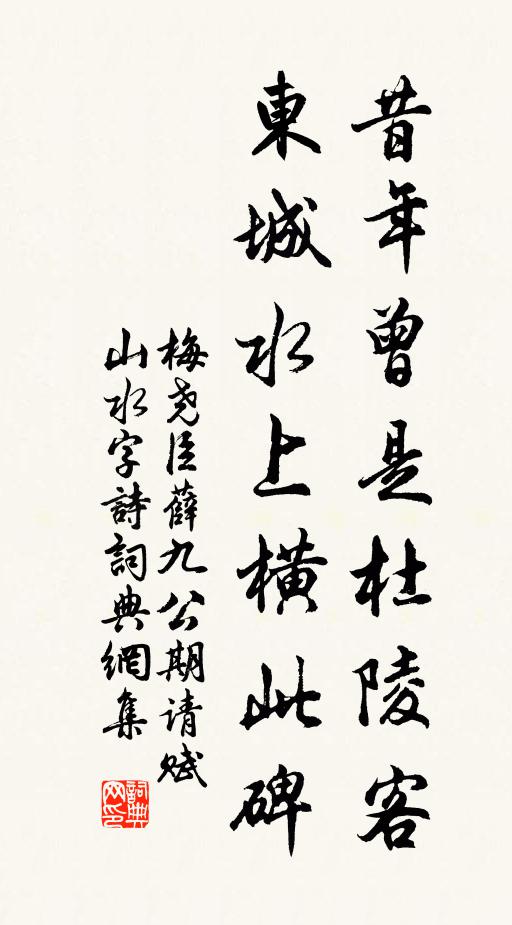 昔年曾是杜陵客
東城水上橫此碑
梅尧臣薛九公期请赋
山水字詩詞典網集
詞典
网印